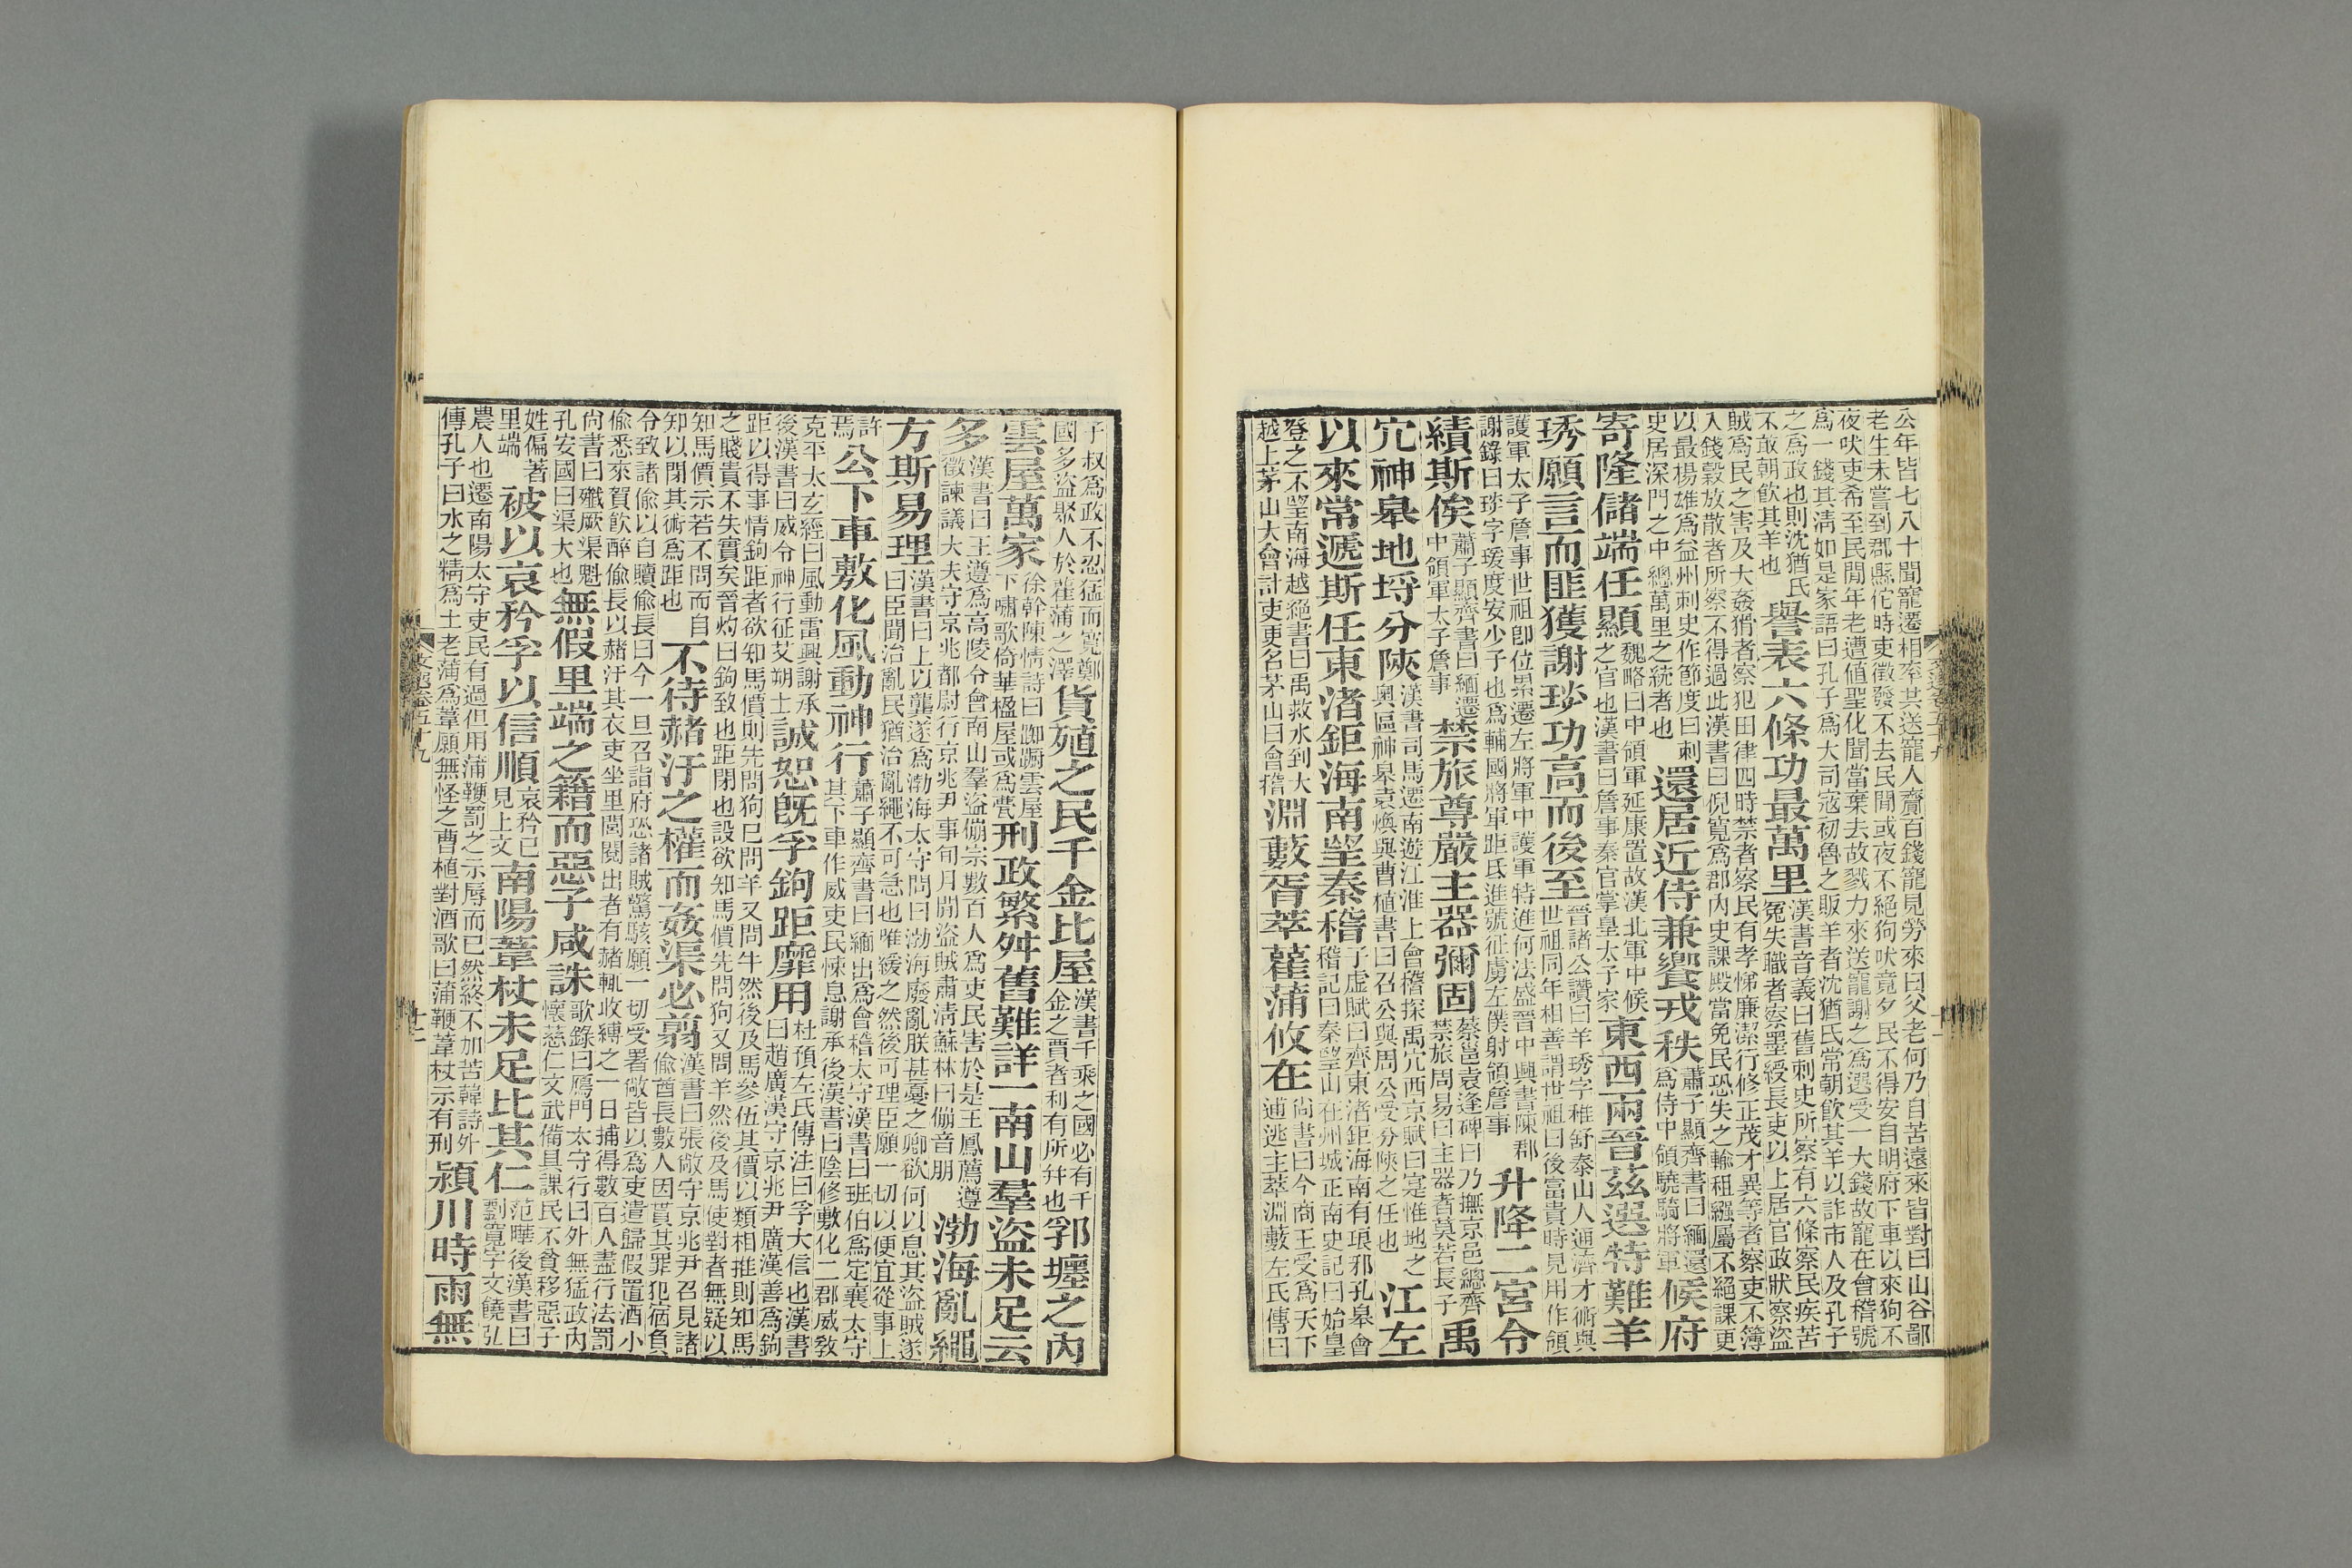 公年皆七八十聞寵遷相率共送寵人齎百錢寵見勞來曰父老何乃自苦遠來皆對曰山谷鄙
老生未嘗到郡縣佗時吏徵發不去民間或夜不絕狗吠竟夕民不得安自明府下車以來狗不
夜吠吏希至民間年老遭值聖化聞當棄去故戮力來送寵謝之爲選受一大錢故寵在會稽號
爲一錢其清如是家語曰孔子爲大司寇初魯之販羊者沈猶氏常朝飲其羊以詐市人及孔子
之爲政也則沈猶氏不敢朝飲其羊也譽表六條功最萬里漢書音義曰舊刺史所察有六條察民疾苦冤失職者察墨綬長吏以上居官政狀察盜
賊爲民之害及大姦猾者察犯田律四時禁者察民有孝悌廉潔行修正茂才異等者察吏不簿
入錢穀放散者所察不得過此漢書曰倪寬爲郡內史課殿當免民恐失之輸租繦屬不絕課更
以最楊雄爲益州刺史作節度曰刺史居深門之中總萬里之統者也還居近侍兼饗戎秩蕭子顯齊書曰緬還爲侍中領驍騎將軍候府
寄隆儲端任顯魏略曰中領軍延康置故漢北軍中候之官也漢書曰詹事秦官掌皇太子家東西兩晉茲選特難羊
琇願言而匪獲謝琰功高而後至晉諸公讚曰羊琇字稚舒泰山人通濟才術與世祖同年相善謂世祖曰後富貴時見用作領
護軍太子詹事世祖卽位累遷左將軍中護軍特進何法盛晉中興書陳郡謝錄曰琰字瑗度安少子也爲輔國將軍距氐進號征虜左僕射領詹事升降二宮令
績斯俟蕭子顯齊書曰緬遷中領軍太子詹事禁旅尊嚴主器彌固蔡邕袁逢碑曰乃撫京邑總齊禁旅周易曰主器者莫若長子禹
穴神皋地埒分陝漢書司馬遷南遊江淮上會稽探禹穴西京賦曰寔惟地之奧區神皋袁煥與曹植書曰召公與周公受分陝之任也江左
以來常遞斯任東渚鉅海南望秦稽子虛賦曰齊東渚鉅海南有琅邪孔皋會稽記曰秦望山在州城正南史記曰始皇
登之不望南海越絕書曰禹救水到大越上茅山大會計吏更名茅山曰會稽淵藪胥萃雚蒲攸在尚書曰今商王受爲天下逋逃主萃淵藪左氏傳曰
子叔爲政不忍猛而寬鄭國多盜聚人於雚蒲之澤貨殖之民千金比屋漢書千乘之國必有千金之賈者利有所幷也郛㕓之內
雲屋萬家徐幹陳情詩曰踟躕雲屋下嘯歌倚華楹屋或爲甍刑政繁舛舊難詳一南山羣盜未足云
多漢書曰王遵爲高陵令會南山羣盜傰宗數百人爲吏民害於是王鳳薦遵徵諫議大夫守京兆都尉行京兆尹事旬月閒盜賊肅清蘇林曰傰音朋渤海亂繩
方斯易理漢書曰上以龔遂爲渤海太守問曰渤海廢亂朕甚憂之卿欲何以息其盜賊遂曰臣聞治亂民猶治亂繩不可急也唯緩之然後可理臣願一切以便宜從事上
許焉公下車敷化風動神行蕭子顯齊書曰緬出爲會稽太守漢書曰班伯爲定襄太守其下車作威吏民悚息謝承後漢書曰陰修敷化二郡威敎
克平太玄經曰風動雷興謝承後漢書曰威令神行征艾朔士誠恕旣孚鉤距靡用杜預左氏傳注曰孚大信也漢書曰趙廣漢守京兆尹廣漢善爲鉤
距以得事情鉤距者欲知馬價則先問狗已問羊又問牛然後及馬參伍其價以類相推則知馬
之賤貴不失實矣晉灼曰鉤致也距閉也設欲知馬價先問狗又問羊然後及馬使對者無疑以
知馬價示若不問而自知以閉其術爲距也不待赭汙之權而姦渠必翦漢書曰張敞守京兆尹召見諸偷酋長數人因貰其罪犯宿負
令致諸偷以自贖偷長曰今一旦召詣府恐諸賊驚駭願一切受署敞皆以爲吏遣歸假置酒小
偷悉來賀飲醉偷長以赭汙其衣吏坐里閭閱出者有赭輒收縛之一日捕得數百人盡行法罰
尙書曰殲厥渠魁孔安國曰渠大也無假里端之籍而惡子咸誅歌錄曰鴈門太守行曰外無猛政內懷慈仁文武備具課民不貧移惡子
姓偏著里端被以哀矜孚以信順哀矜已見上文南陽葦杖未足比其仁范曄後漢書曰劉寬字文饒弘
農人也遷南陽太守吏民有過但用蒲鞭罰之示辱而已然終不加苦韓詩外傳孔子曰水之精爲土老蒲爲葦願無怪之曹植對酒歌曰蒲鞭葦杖示有刑潁川時雨無